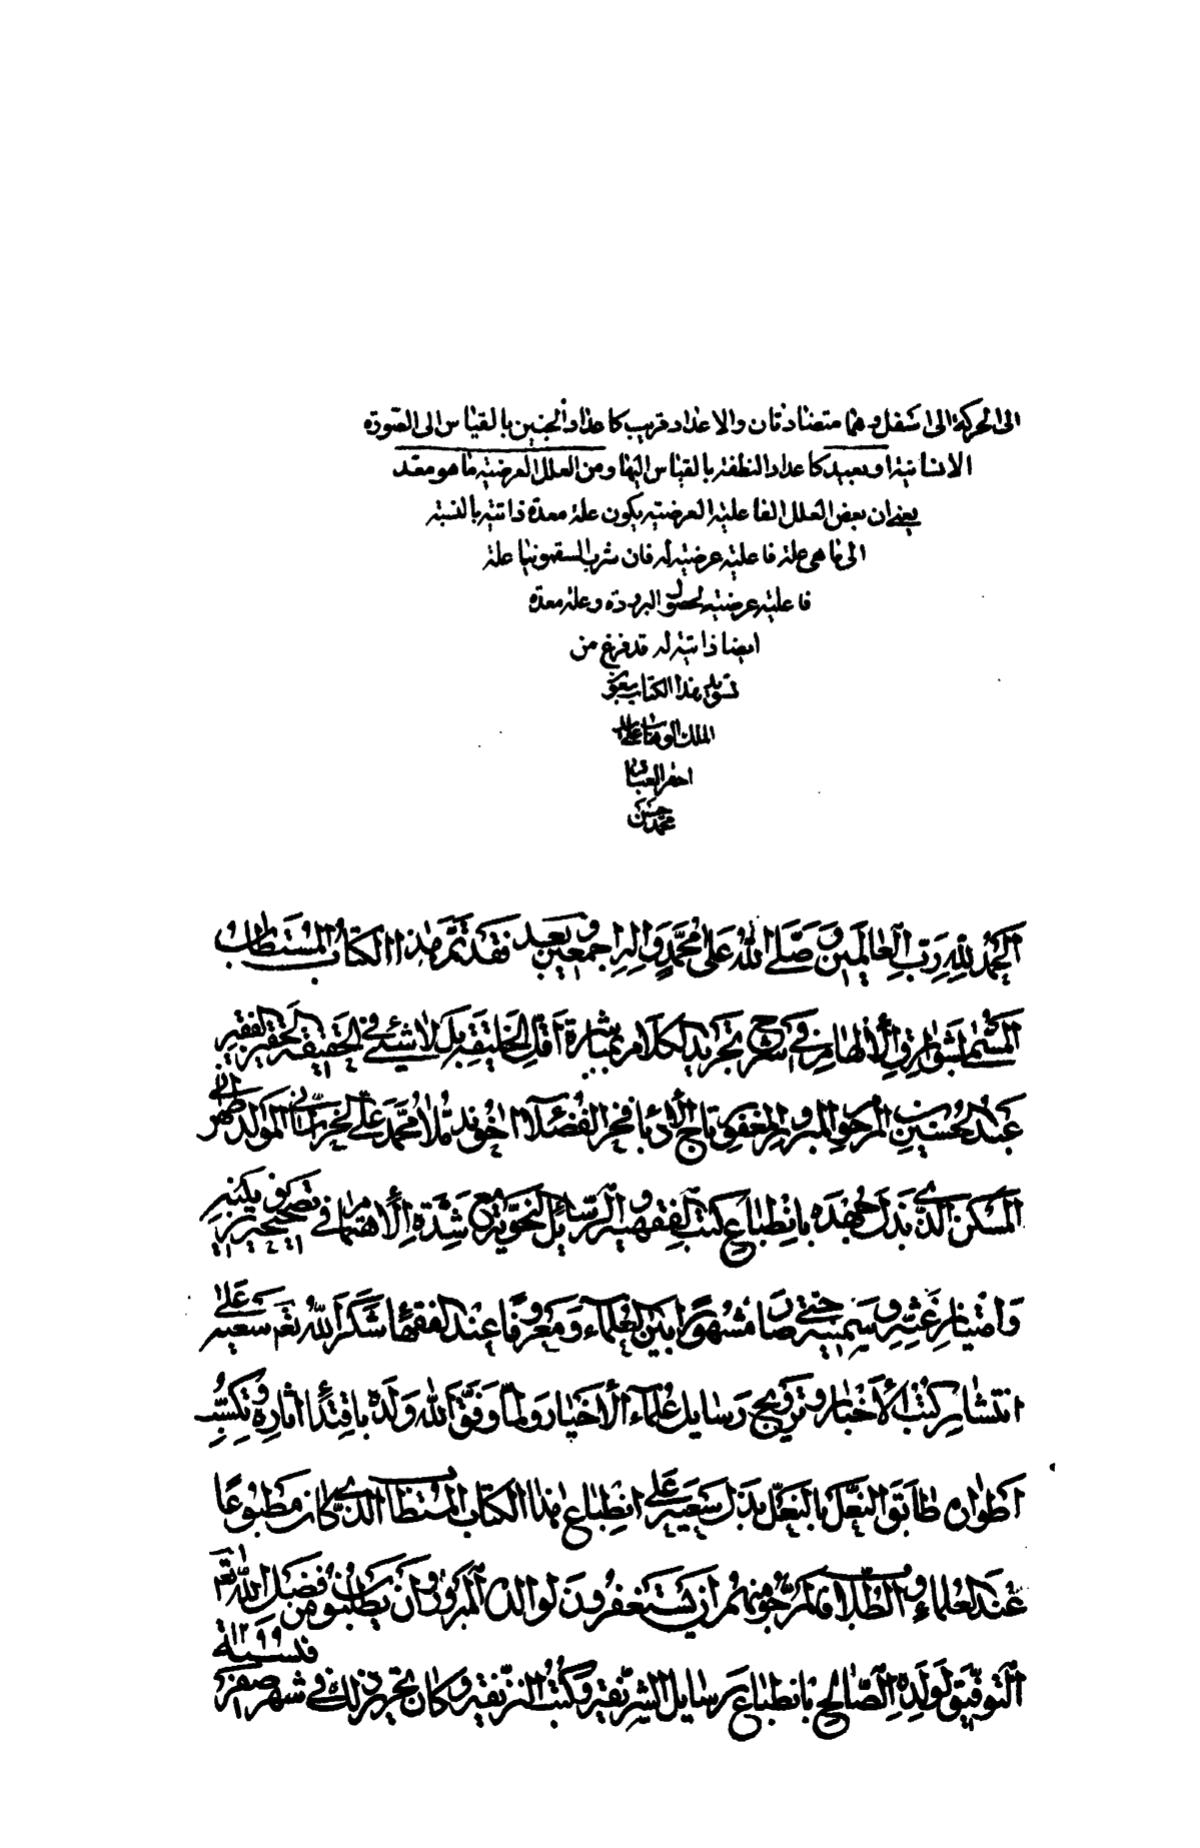 الى الحركة الى اسفل وهما متضادتان والاعداد قريب كاعداد الجنين بالقياس الى الصورة
الانسانية او بعيد كاعداد النطفة بالقياس اليها ومن العلل العرضية ما هو معد
يعنى ان بعض العلل الفاعلية العرضية يكون علة معدة ذاتية بالنسبة
الى ما هى علة فاعلية عرضية له فان شرب السقمونيا علة
فاعلية عرضية لحصول البرودة وعلة معدة
ايضا ذاتية له قد فرغ من
تسويد هذا الكتاب بعون
الملك الوهاب على يد
احقر العباد
محمد حسن
الحمد لله رب العالمين وصلى الله على محمد واله اجمعين وبعد فقد تم هذا الكتاب المستطاب
المسمى بشوارق الالهام في شرح تجريد الكلام بمباشرة اقل الخليقة بل لا شىء في الحقيقة الحقير الفقير
عبد الحسين المرحوم المبرور المغفور تاج الادباء فخر الفضلاء اخوند ملا محمد على الخراسانى المولد طهرانى
المسكن الذى بذل جهده بانطباع كتب الفقهية والرسائل النحوية مع شدة الاهتمام في تصحيح
وامتياز غثه وسمينه حتى صار مشهورا بين العلماء ومعروفا عند الفقهاء شكر الله تعالى سعيه على
انتشار كتب الاخبار وترويج رسايل علماء الاخيار ولما وفق الله ولده باقتداء اثاره وتكسب
اطواره طابق النعل بالنعل بذل سعيه على انطباع هذا الكتاب المستطاب الذى كان مطبوعا
عند العلماء والطلاب فالمرجو منهم ان يستغفرون لوالدى المبرور وان يطلبون من فضل الله تعالى
التوفيق لولده الصالح بانطباع رسايل الشريفة وكتب النزيفة وكان تحرير ذلك في شهر صفر
فى سنة ١٢٩٩